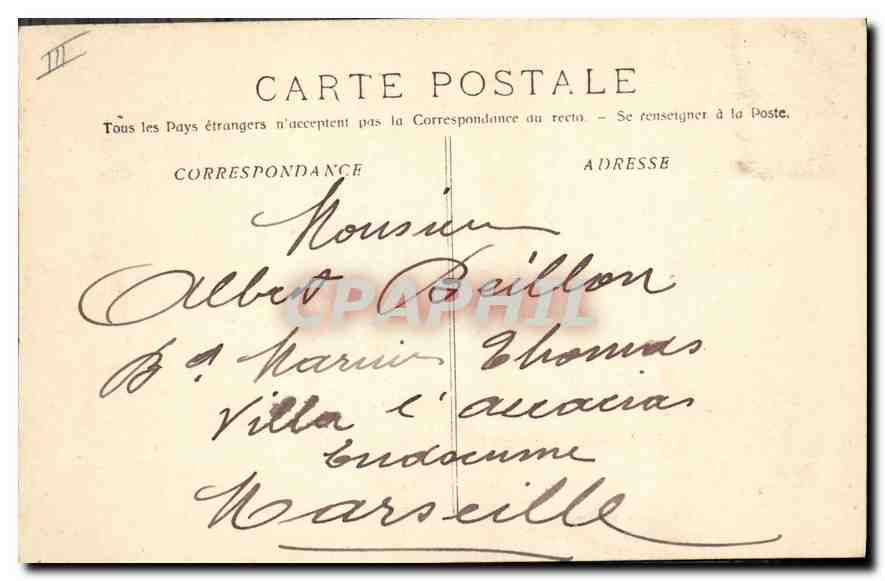 III
CARTE POSTALE
Tous les Pays étrangers n'acceptent pas la Correspondance au recto. – Se renseigner à la Poste.
CORRESPONDANCE
ADRESSE
Monsieur
Albert Beillon
CPAPHIL
Bd Marius Thomas
Villa l'accacias
Endoume
Marseille